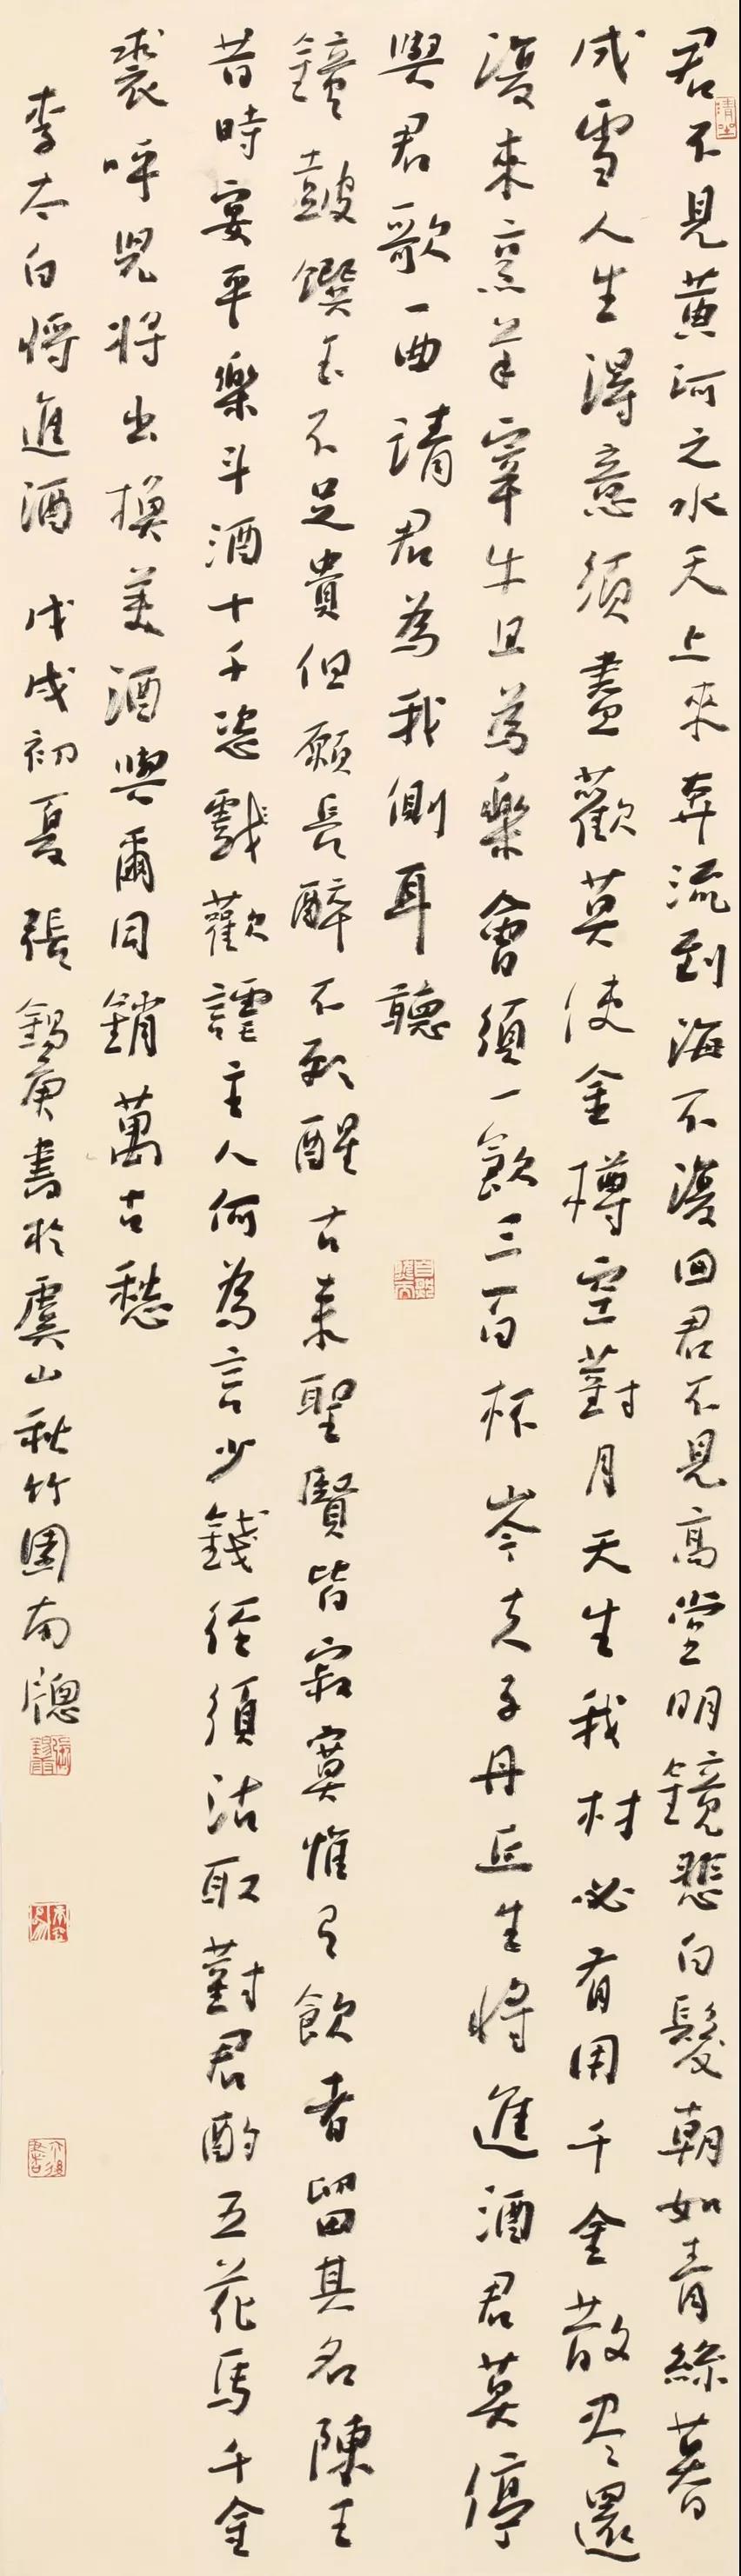 君不見黃河之水天上來奔流到海不復回君不見高堂明鏡悲白髮朝如青絲暮
成雪人生得意須盡歡莫使金樽空對月天生我材必有用千金散盡還
復來烹羊宰牛且為樂會須一飲三百杯岑夫子丹丘生將進酒君莫停
與君歌一曲請君為我側耳聽
鐘鼓饌玉不足貴但願長醉不願醒古來聖賢皆寂寞惟有飲者留其名陳王
昔時宴平樂斗酒十千恣戲歡謔主人何為言少錢徑須沽取對君酌五花馬千金
裘呼兒將出換美酒與爾同銷萬古愁
李太白將進酒 戊戌初夏張錫庚書於虞山秋竹園南牕